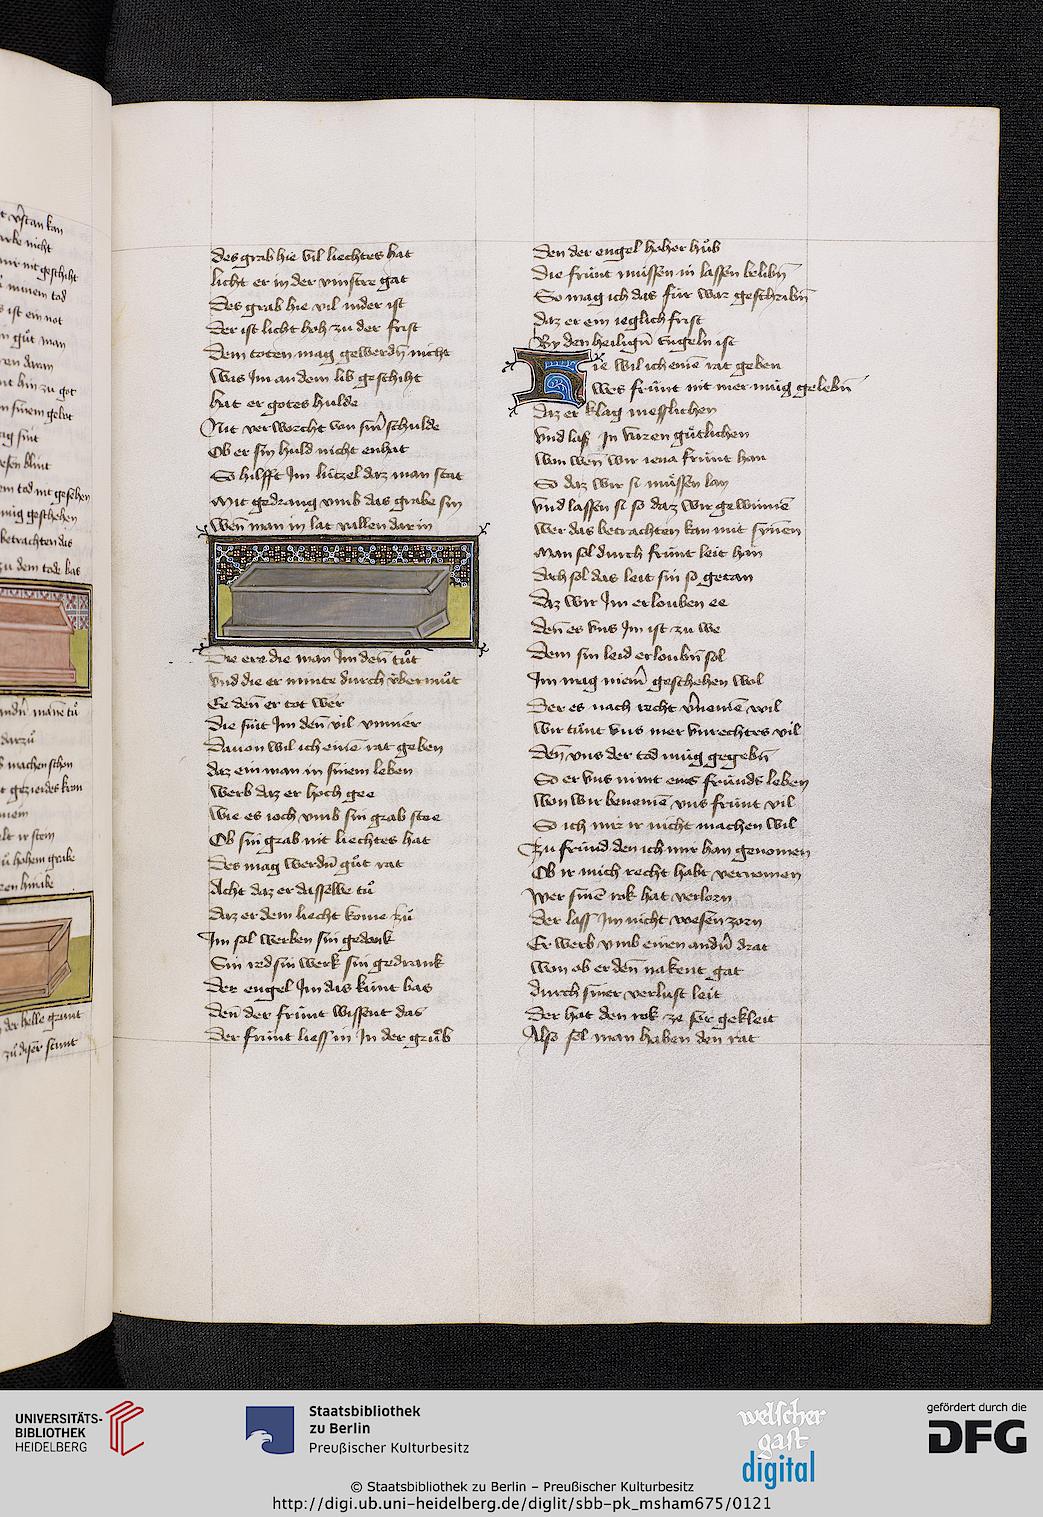 des grab hie vil liechtes hat
licht er in der vinstre gat
Des grab hie vil nider ist
Der ist licht hoh zu der frist
Dem toten mag gewerdn̄ nicht
Was Jm an dem lib geschiht
hat er gotes hulde
Nit verworcht von sinr̄ schulde
Ob er sin huld nicht enhat
So hilfft Jm lützel daz man stat
Mit gedrang vmb das grabe sin
Wen̄ man in lat vallen dar in
Die ere die man Jm den̄ tůt
vnd die er minte durch v̇bermůt
Ee den̄ er tot wer
Die sint Jm den̄ vil vnmer
Dauon wil ich einē rat geben
daz ein man in sinem leben
Werb daz er hoch gee
Wie es ioch vmb sin grab stee
Ob sin grab nit liechtes hat
Des mag werdn̄ gůt rat
Acht daz er dasselbe tů
Daz er dem liecht kome zů
Jm sol werben sin gedank
Sin red sin werk sin gedrank
Der engel Jm das kúnt bas
den̄ der frúnt wissent das
Der frúnt liess in Jn der grůb
den der engel hoher hůb
Die frúnt müssen in lassen belibn̄
So mag ich das für war geschribn̄
daz er ein ieglich frist
By den heilign̄ Engeln ist
ie wil ich einē rat geben
wes frúnt nit mer múg gelebn̄
Daz er klag messlichen
vnd lass Jn varen gůtlichen
Won wen̄ wir iena frúnt han
So daz wir si müssen lan
vnd lassen si so daz wir gewinnē
wer das betrachten kan mit synen
Man sol durch frúnt leit han
doch sol das leit sin so getan
Daz wir Jm erlouben ee
den̄ es vns Jm ist zu we
Dem sin leid erloubn̄ sol
Jm mag niem̄ geschehen wol
Der es nach recht v̄nemē wil
wir tůnt vns mer vnrechtes vil
Den̄ vns der tod múg gegebn̄
So er vns nimt eins frúnds leben
Won wir benemē vns frúnt vil
So ich mir ir nicht machen wil
Zu frúnd den ich mir han genomen
Ob ir mich recht habt vernomen
Wer sinē rok hat verlorn
Der lass Jm nicht wesen zorn
Er werb vmb einen andn̄ drat
Won ob er den̄ nakent gat
durch siner verlust leit
Der hat den rok ze ser gekleit
Also sol man haben den rat
UNIVERSITÄTS-
BIBLIOTHEK
HEIDELBERG
Staatsbibliothek
zu Berlin
Preußischer Kulturbesitz
welscher
gast
digital
gefördert durch die
DFG
© Staatsbibliothek zu Berlin – Preußischer Kulturbesitz
http://digi.ub.uni-heidelberg.de/diglit/sbb-pk_msham675/0121